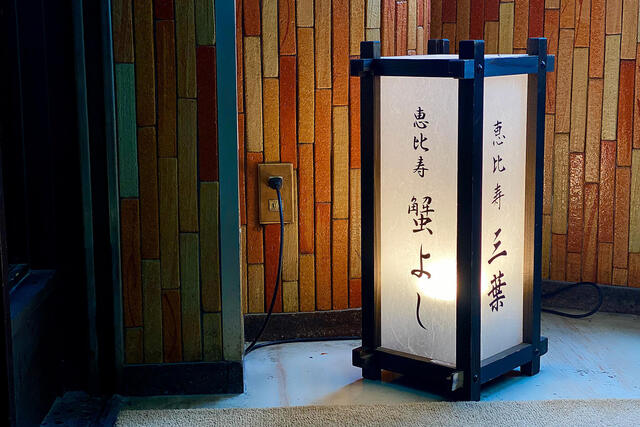 恵比寿 蟹よし
恵比寿 三葉